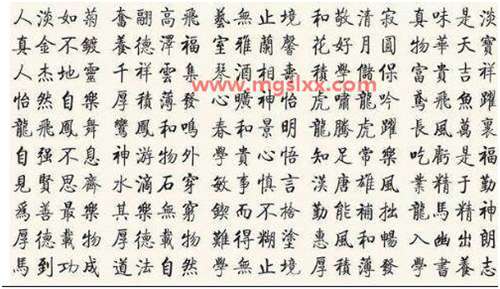 人淡如菊 奮翮高飛 藝無止境 和敬清寂 真味是淡
真金不鍍 養德澤福 室雅蘭馨 花好月圓 物華天寶
人杰地靈 千祥雲集 積學儲 富貴吉
www.mgslxx.com
怡然自樂 厚積薄發 心曠神怡 虎嘯龍吟 鳶飛魚躍
龍飛鳳舞 鸞鳳和鳴 春和景明 龍騰虎躍 長風萬裏
自強不息 神游物外 學貴心悟 知足常樂 吃虧是福
見賢思齊 水滴石穿 敏事慎言 漢唐雄風 業精于勤
爲善最樂 其樂無窮 鍥而不捨 勤能補拙 龍馬精神
厚德載物 難得糊塗 惠風和暢 入幽出朗
馬到功成 道法自然 學無止境 厚積薄發 學書養志